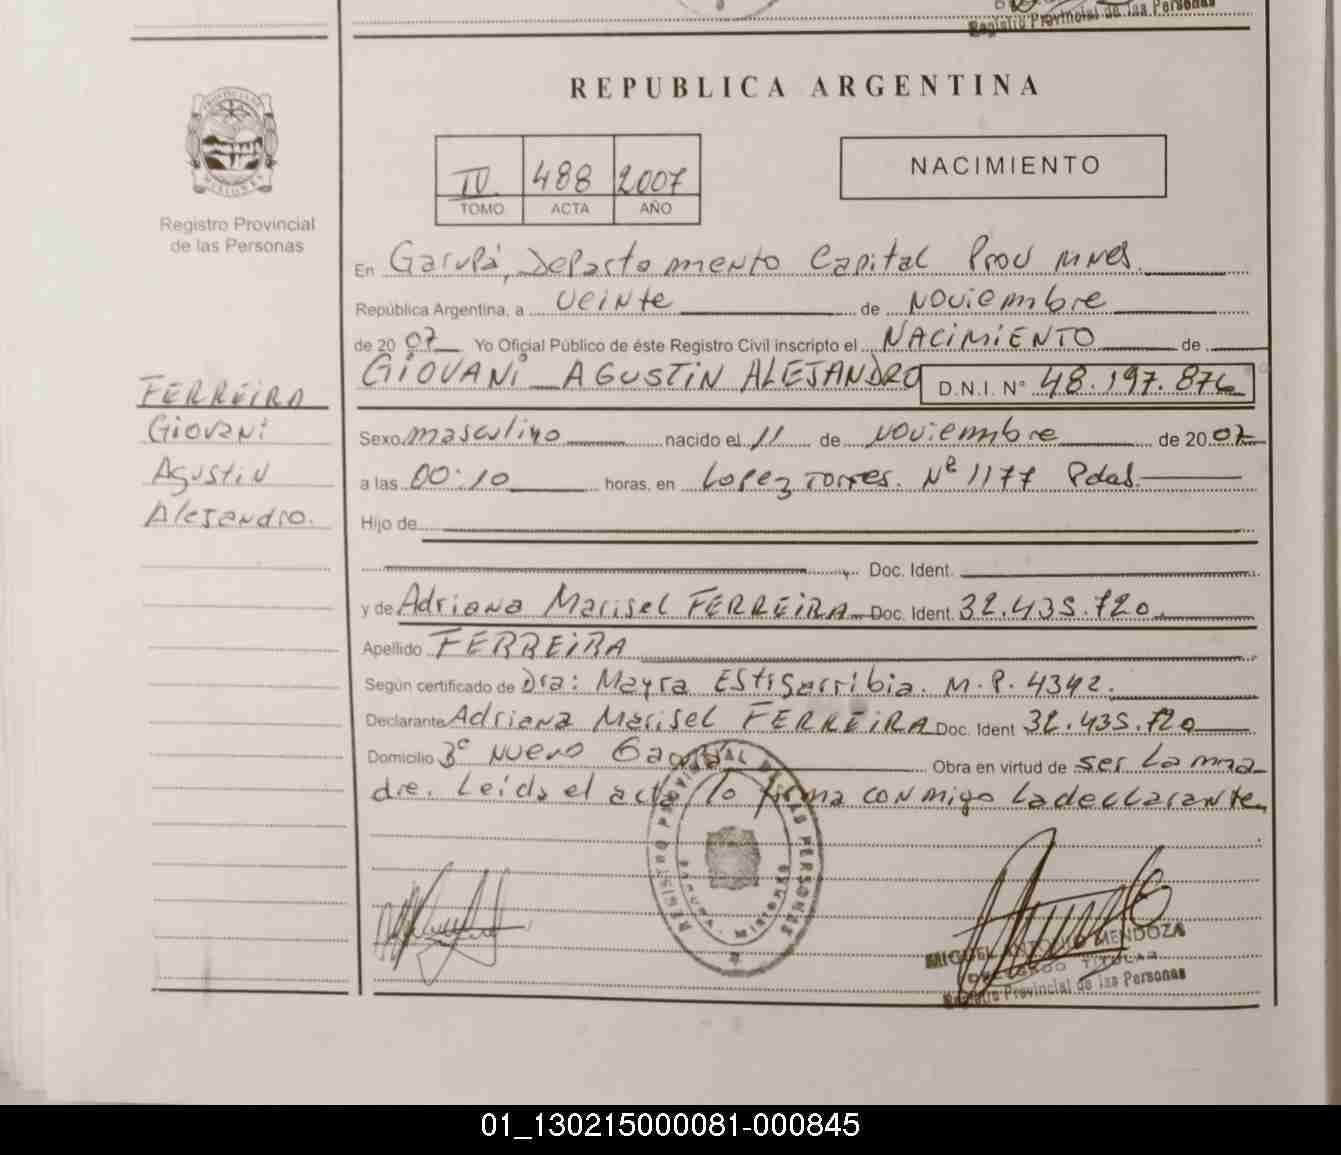 Registro Provincial de las Personas
REPUBLICA ARGENTINA
PROVINCIA DE
MISIONES
Registro Provincial
de las Personas
IV 488 2007
TOMO ACTA AÑO
NACIMIENTO
En Garupá, Departamento Capital Prov Mnes.
República Argentina, a veinte de noviembre
de 20 07 Yo Oficial Público de éste Registro Civil inscripto el NACIMIENTO de
GIOVANI AGUSTIN ALEJANDRO D.N.I. Nº 48.197.876
FERREIRA
Giovani
Agustin
Alejandro.
Sexo masculino nacido el 11 de noviembre de 20 07
a las 00:10 horas, en Lopez Torres. Nº 1177 Pdas.
Hijo de
Doc. Ident.
y de Adriana Marisel FERREIRA Doc. Ident. 32.435.720
Apellido FERREIRA
Según certificado de Dra: Mayra Estigarribia. M.P. 4342.
Declarante Adriana Marisel FERREIRA Doc. Ident 32.435.720
Domicilio Bº Nuevo Garupá Obra en virtud de ser la ma-
dre. Leida el acta, lo firma conmigo la declarante
REGISTRO PROVINCIAL DE LAS PERSONAS
GARUPA - MISIONES
MIGUEL ANTONIO MENDOZA
DELEGADO TITULAR
Registro Provincial de las Personas
01_130215000081-000845